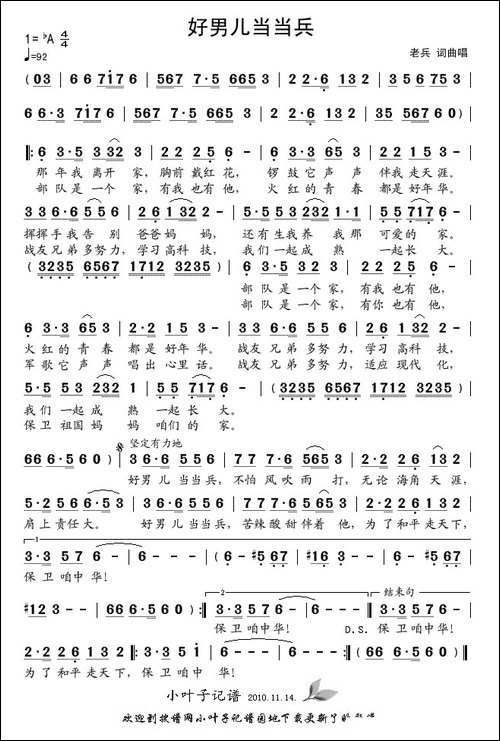 好男儿当当兵
1=♭A 4/4
♩=92
老兵 词曲唱
(03 | 66 7176 | 567 7·5 6653 | 22·6 132 | 35 6753 |
66·3 7176 | 567 7·5 6653 | 22·6 132 | 35 35 6760) |
‖: 6 3·5 332 3 | 22 25 6 - | 6 3·3 65 3 | 2·2 15 3 - |
那年我离开 家, 胸前戴红花, 锣鼓它声声 伴我走天涯。
部队是一个 家, 有我也有他, 火红的青春 都是好年华。
336·6 55 6 | 22 26 5 - | 5·5 53 232 1·1 | 55 7176 - |
挥挥手我告别 爸爸妈妈, 还有生我养我那 可爱的家。
战友兄弟多努力, 学习高科技, 我们一起成熟 一起长大。
(3235 6567 1712 3235) | 6 3·5 332 3 | 22 25 6 - |
部队是一个 家, 有我也有他,
部队是一个 家, 有你也有他,
6 3·3 65 3 | 2·2 15 3 - | 336·6 55 6 | 22 26 1322 - |
火红的青春 都是好年华。 战友兄弟多努力, 学习高科技,
军歌它声声 唱出心里话。 战友兄弟多努力, 适应现代化,
5·5 53 232 1 | 55 7176 - | (3235 6567 1712 3235) |
我们一起成 熟一起长大。
保卫祖国妈 妈咱们的家。
坚定有力地
66 6·5 60) | 36·6 55 6 | 3·5 66 565 3 | 2·2 26 13 2 |
好男儿当当兵, 不怕风吹雨打, 无论海角天涯,
5·2 56 5 - | 36·6 55 6 | 3·5 66 565 3 | 2·2 26 1322 |
肩上责任大。 好男儿当当兵, 苦辣酸甜伴着他, 为了和平走天下,
1
3·3 57 6 - | 6 - - - | (6 - - #56 | 7 - - 5·6 | #16 3 - - | 6 - - #567 |
保卫咱中华!
2
结束句
#123 - - | 66 6·5 60) :‖ 3·3 57 6 - | 6 - - - :‖ 3·3 57 6 - |
保卫咱中华! D.S. 保卫咱中华!
2·2 26 2 2 - | 3·3 5 1 - | 6 - - - | 6 - - - ‖
为了和平走天下, 保卫咱中华!
小叶子记谱 2010.11.14.
欢迎到搜谱网小叶子记谱园地下载更新了的